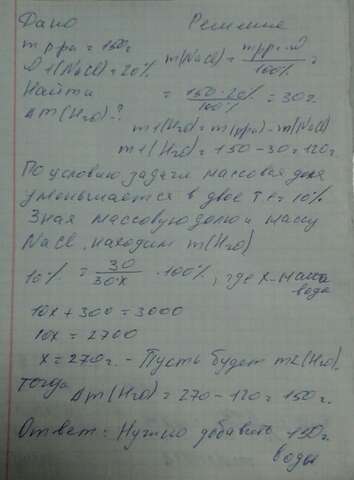 Дано Решение
m р-ра = 150г
ω1(NaCl) = 20% m(NaCl) = m р-ра·ω / 100% =
Найти = 150·20% / 100% = 30г.
Δm(H2O)-? m1(H2O) = m(р-ра) - m(NaCl)
m1(H2O) = 150 - 30 = 120г.
По условию задачи массовая доля
уменьшается в двое т.е = 10%
Зная массовую долю и массу
NaCl, находим m(H2O)
10% = 30 / 30+X · 100%, где X - масса
воды
10x + 300 = 3000
10x = 2700
x = 270г. - Пусть будет m2(H2O),
тогда Δm(H2O) = 270 - 120 = 150г.
Ответ: Нужно добавить 150г.
воды